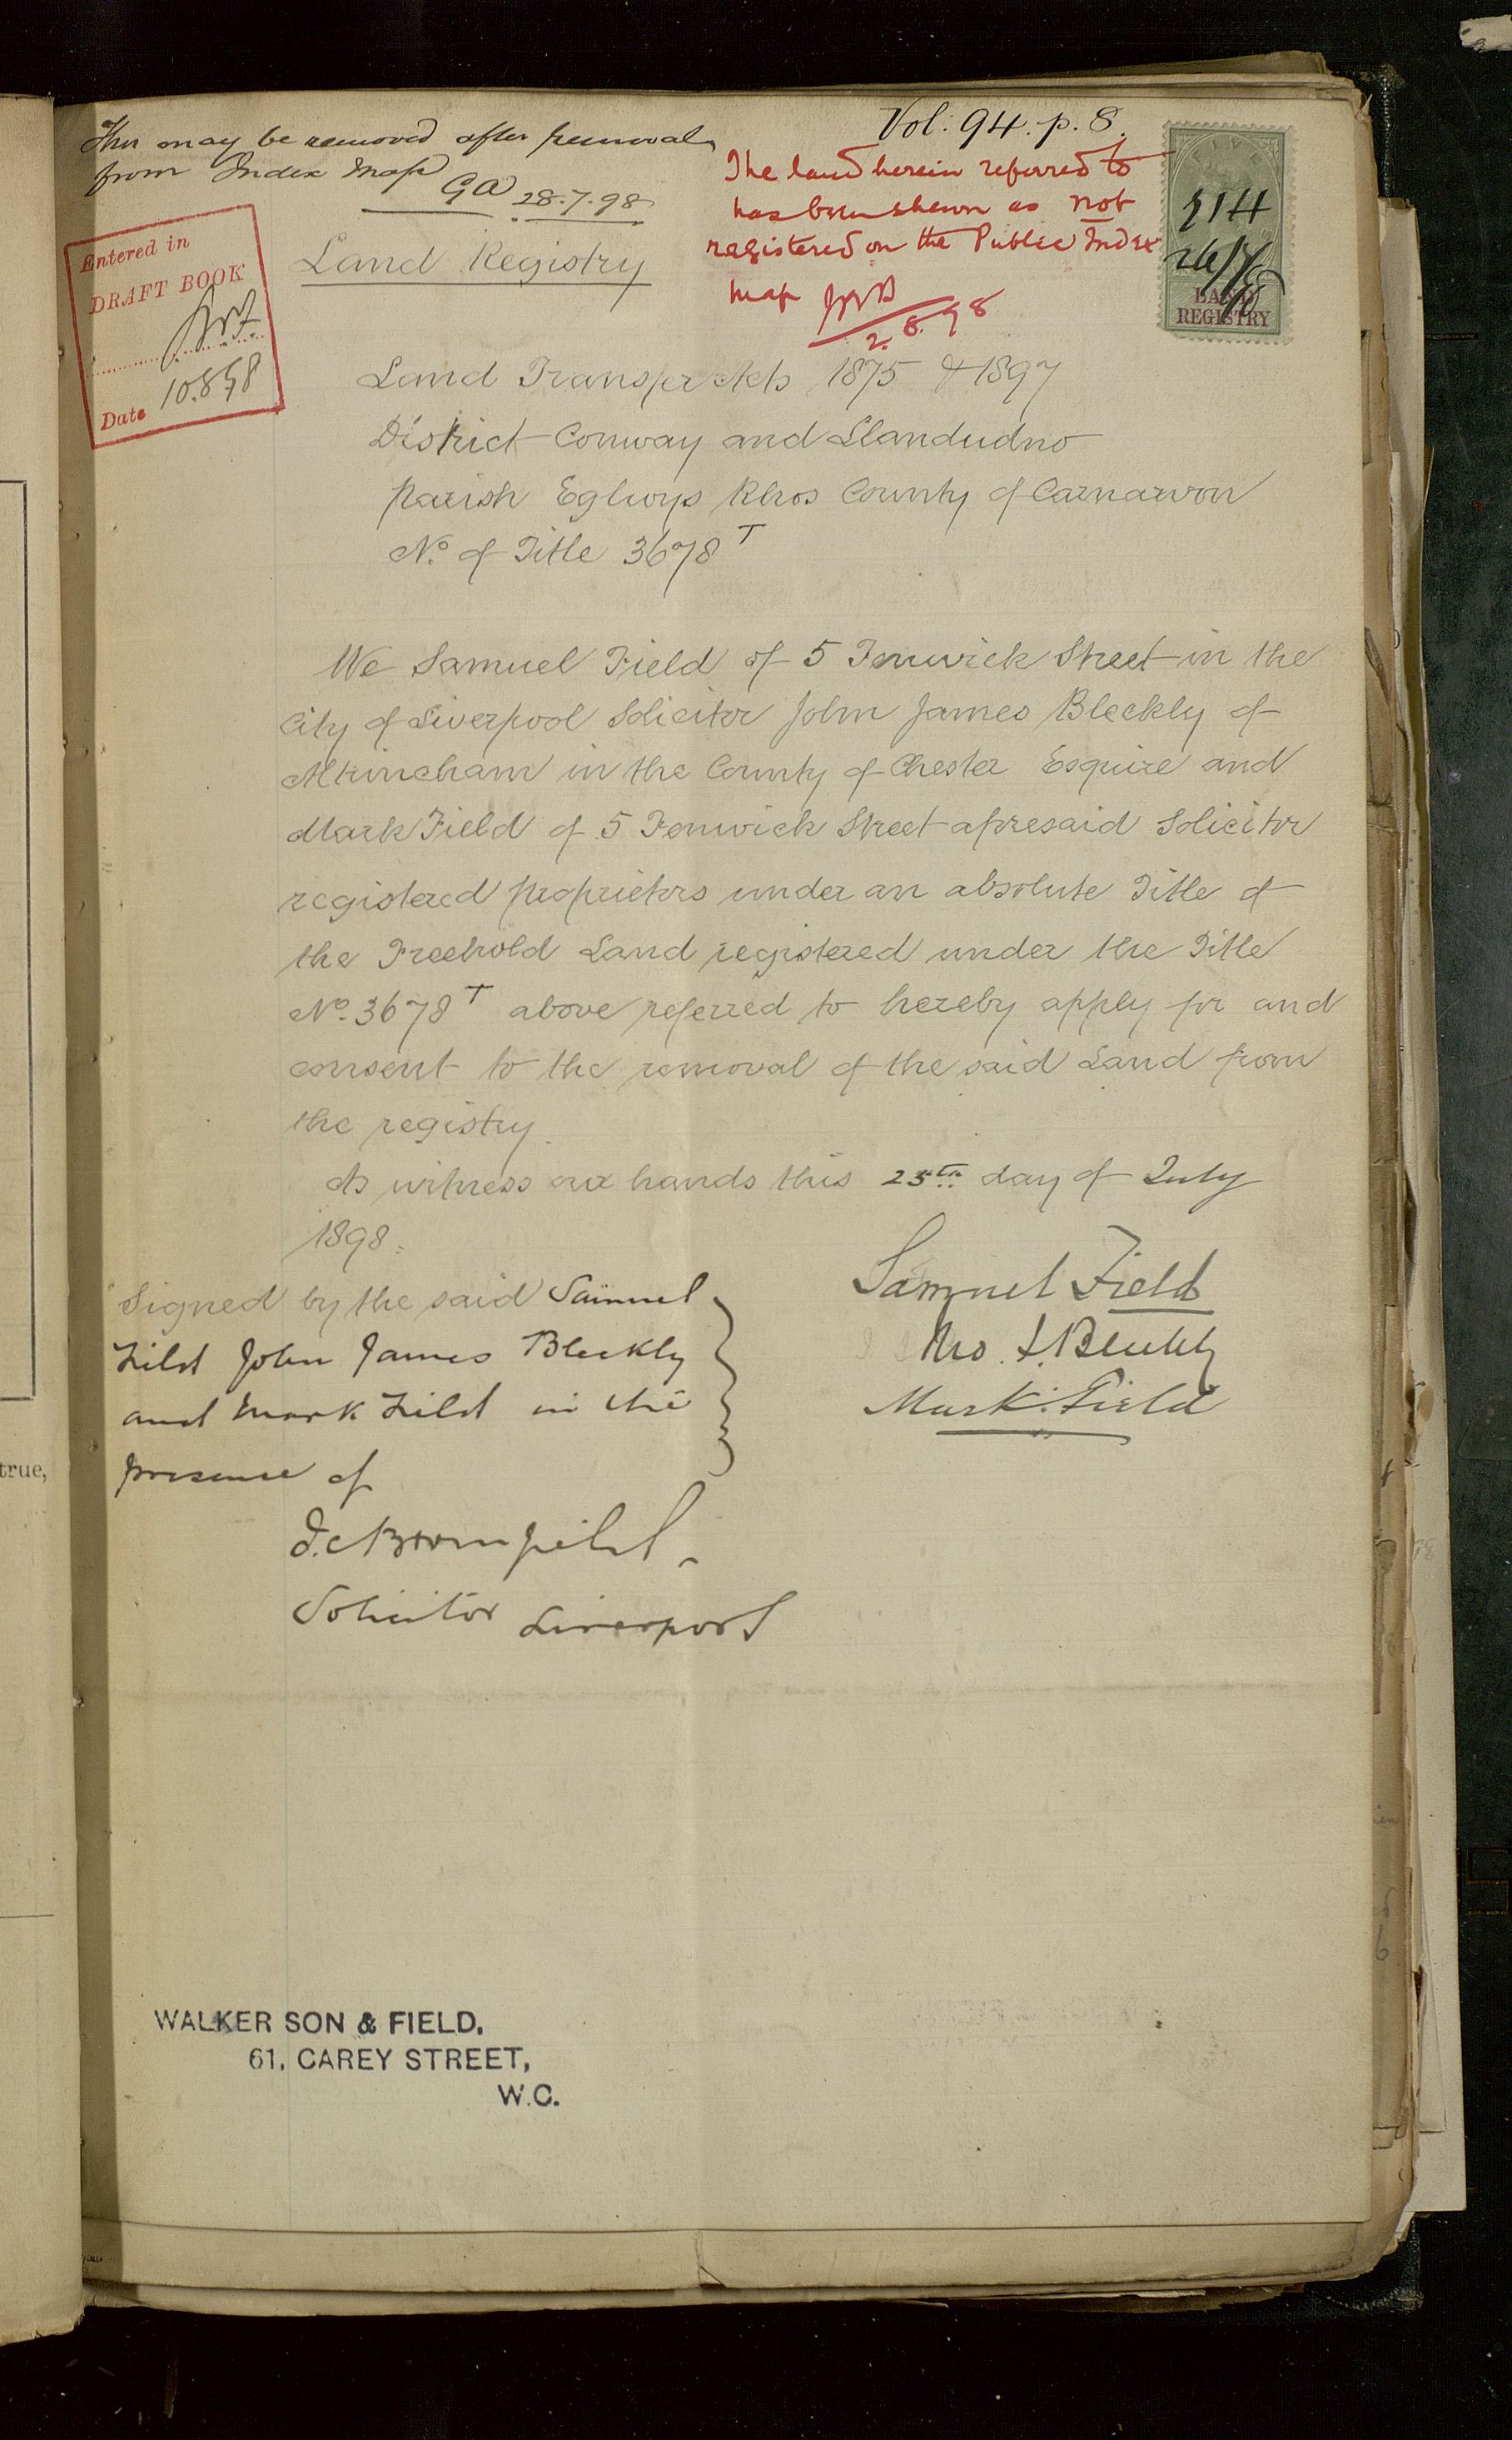 This may be removed after removal
from Index Map
GA 28.7.98
Vol. 94. p. 8.
The land herein referred to
has been shewn as not
registered on the Public Index
Map
2.8.98
FIVE
514
26/7/98
LAND
REGISTRY
Entered in
DRAFT BOOK
Date 10.8.98
Land Registry
Land Transfer Acts 1875 & 1897
District Conway and Llandudno
Parish Eglwys Rhos County of Carnarvon
No. of Title 3678 T
We Samuel Field of 5 Fenwick Street in the
City of Liverpool Solicitor John James Bleckly of
Altrincham in the County of Chester Esquire and
Mark Field of 5 Fenwick Street aforesaid Solicitor
registered proprietors under an absolute Title of
the Freehold Land registered under the Title
No. 3678 T above referred to hereby apply for and
consent to the removal of the said Land from
the registry.
As witness our hands this 25th day of July
1898.
Signed by the said Samuel
Field John James Bleckly
and Mark Field in the
presence of
Samuel Field
Jno. J. Bleckly
Mark Field
Solicitor Liverpool
WALKER SON & FIELD.
61, CAREY STREET,
W.C.
true,